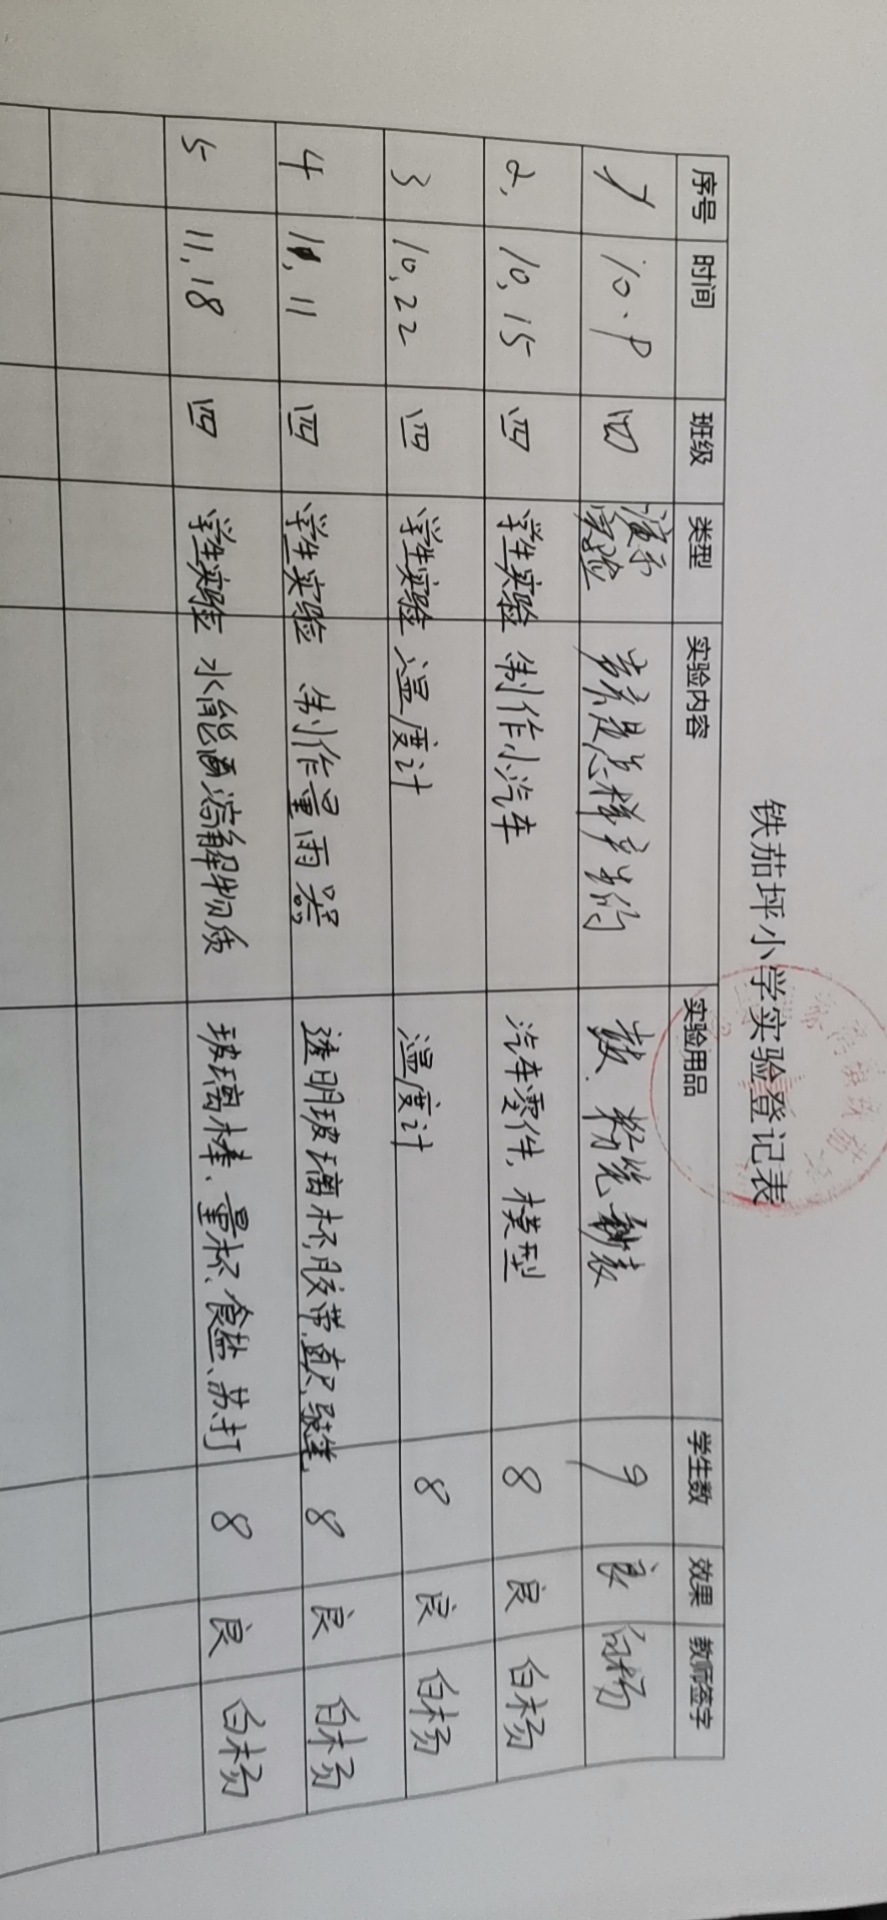 铁茄坪小学实验登记表
序号 时间 班级 类型 实验内容 实验用品 学生数 效果 教师签字
1 10.9 四 演示实验 声音是怎样产生的 鼓、粉笔 9 良 白杨
2, 10,15 四 学生实验 制作小汽车 汽车零件,模型 8 良 白杨
3 10,22 四 学生实验 温度计 温度计 8 良 白杨
4 11,11 四 学生实验 制作量雨器 透明玻璃杯,胶带,直尺, 8 良 白杨
5 11,18 四 学生实验 水能溶解物质 玻璃棒、量杯、食盐、苏打 8 良 白杨